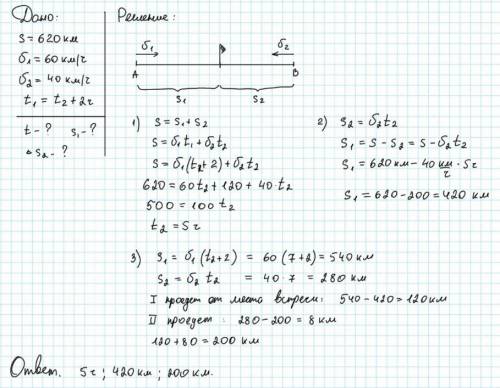 Дано:
S = 620 км
υ1 = 60 км/ч
υ2 = 40 км/ч
t1 = t2 + 2ч
t - ?   S1 - ?
S2 - ?
Решение:
υ1   υ2
A   B
S1   S2
1) S = S1 + S2
S = υ1t1 + υ2t2
S = υ1(t2+2) + υ2t2
620 = 60t2 + 120 + 40·t2
500 = 100t2
t2 = 5ч
2) S2 = υ2t2
S1 = S - S2 = S - υ2t2
S1 = 620км - 40 км/ч · 5ч
S1 = 620 - 200 = 420 км
3) S1 = υ1(t2+2) = 60(7+2) = 540 км
S2 = υ2t2 = 40·7 = 280 км
I проедет от места встречи: 540 - 420 = 120км
II проедет: 280 - 200 = 8 км
120 + 80 = 200 км
Ответ. 5ч; 420 км; 200 км.